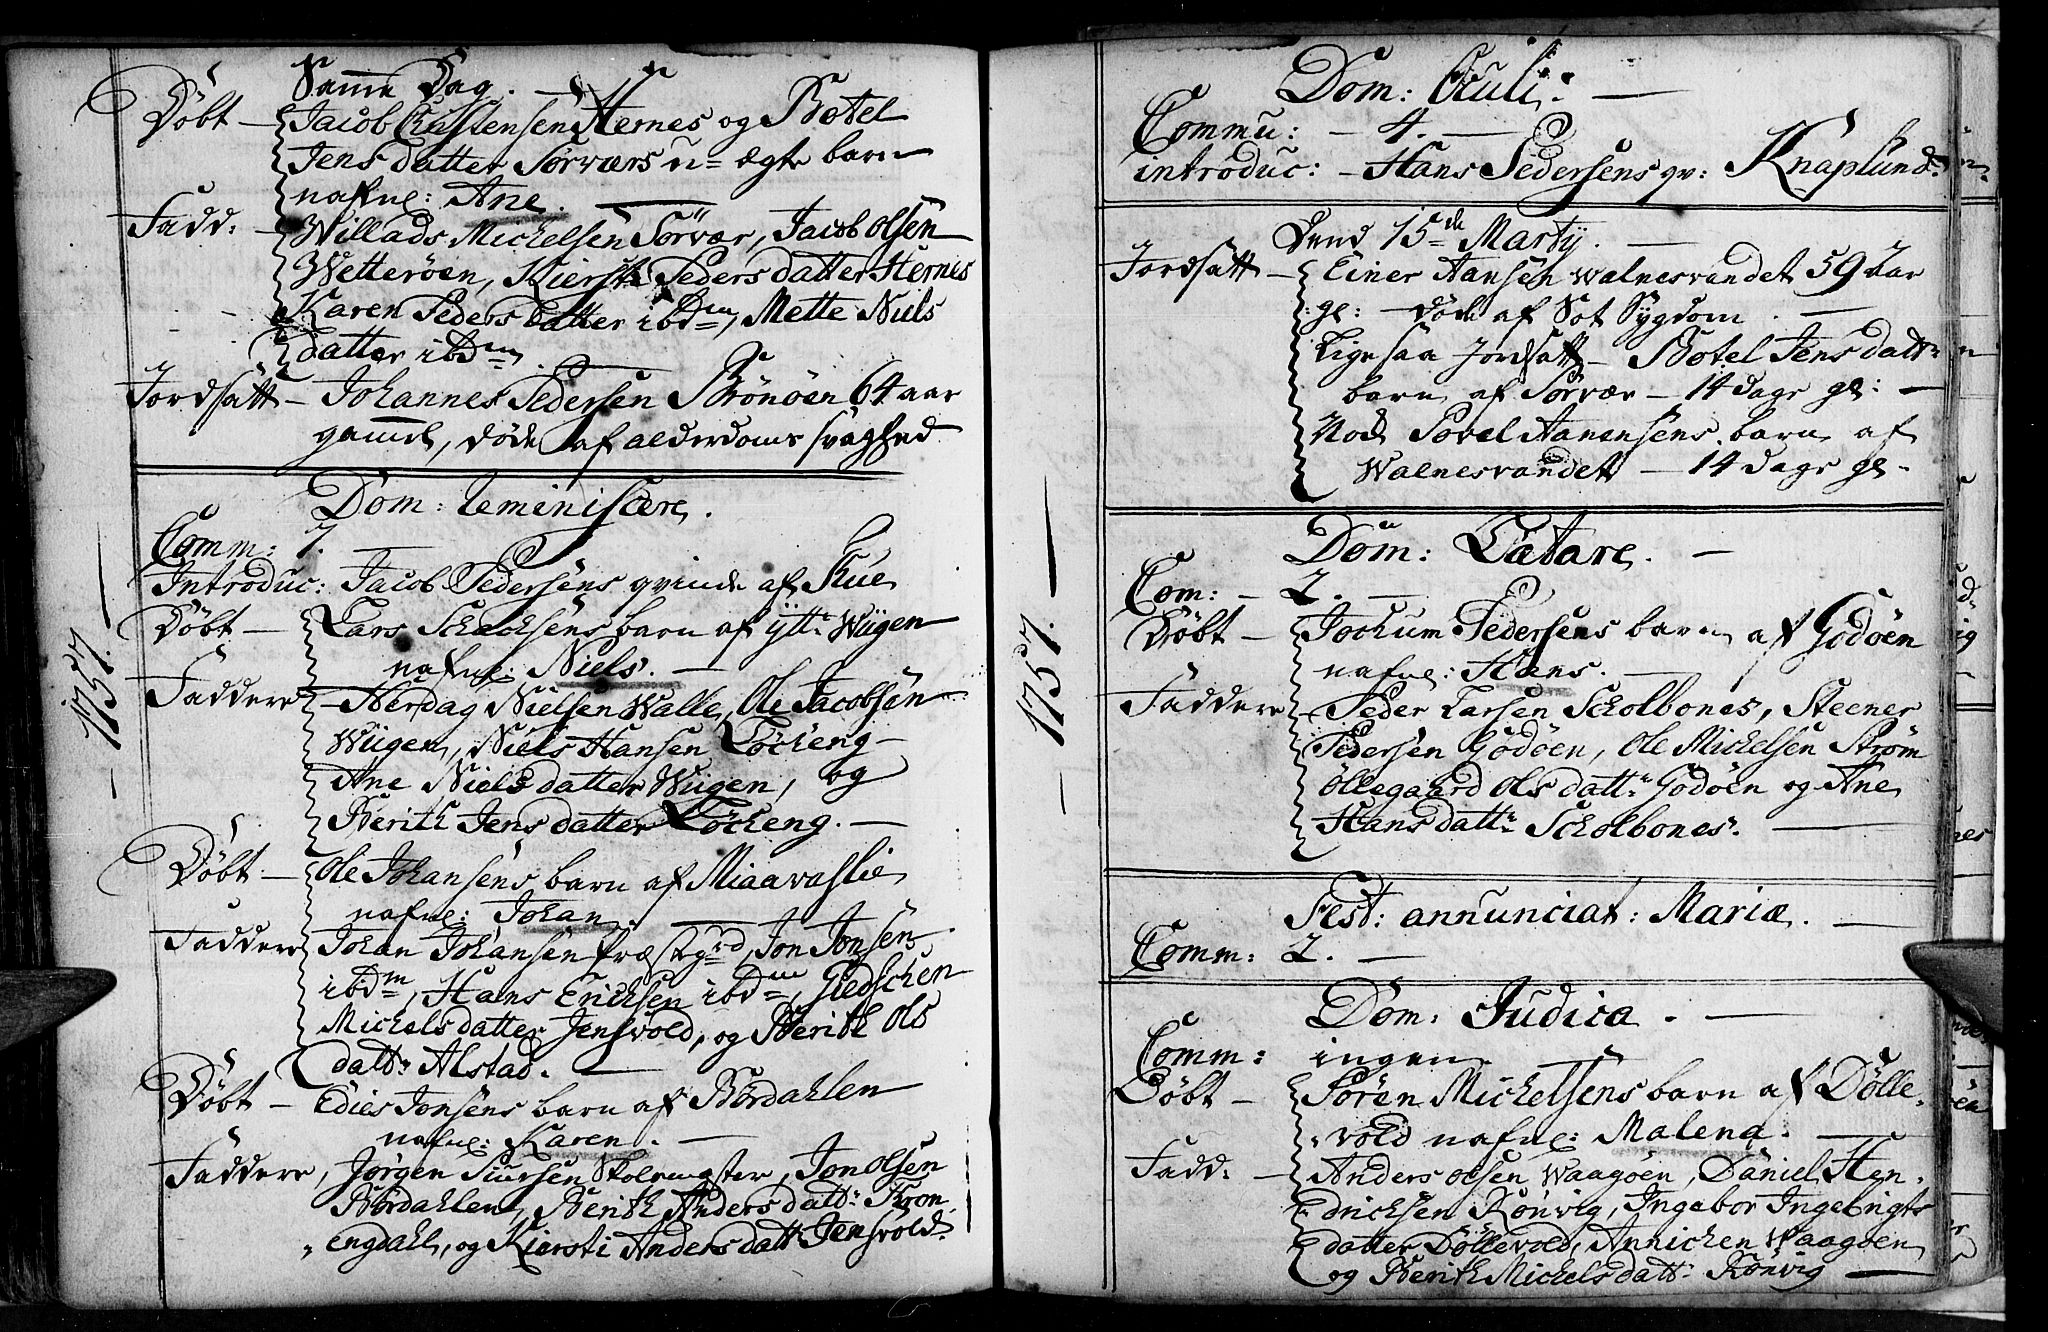 Samme Dag. —
Döbt — Jacob Christensen Hernes og Botel
Jens datter Sørværs u= ægte barn
nafnl: Ane. —
Fadd: — Willads Michelsen Sørvær, Jacob Olsen
Wetteröen, Kiersti Peders datter Hernes
Karen Peders datter ibdm, Mette Niels
datter ibdm. —
Jordsatt — Johannes Pedersen Brönöen 64 aar
gamel, döde af alderdoms svaghed
Dom: Reminiscere.
Comm: 7. —
Introduc: Jacob Pedersens qvinde af Skue
Döbt — Lars Schechsens barn af ytt: Wiigen
nafnl: Niels. —
Faddere — Herdag Nielsen Walle, Ole Jacobsen
Wiigen, Niels Hansen Löcheng
Ane Niels datter Wiigen, og
Berith Jens datter Löcheng. —
Döbt — Ole Johansens barn af Miaavaslie
nafnl: Johan. —
Faddere Johan Johansen Præstgrd, Jon Jonsen
ibdm, Hans Ericksen ibdm, Giedschen
Michels datter Jensvold, og Berith Ols
datt: Alstad. —
Döbt — Edies Jonsens barn af Bördahlen
nafnl: Karen. —
Faddere, Jörgen Siursen Skolemester, Jon Olsen
Bördahlen, Berith Anders datt: Kron
„ engdahl, og Kiersti Anders datt: Jensvold.
— 1757. —
Dom: Oculi. —
Commu: — 4. —
introduc: — Hans Pedersens qv: Knaplund.
Dend 15de Martij. —
Jordsatt — Einer Aansen Walnesvandet 59 Aar
: gl: — döde af Sot Sygdom. —
Ligesaa Jordsatt — Botel Jens datt:
barn af Sørvær — 14 dage gl: —
Nok Povel Aanensens barn af
Walnesvandet — 14 dage gl —
Dom: Lætare. —
Com: — 2. —
Döbt — Jochum Pedersens barn af Godöen
nafnl: Hans. —
Faddere — Peder Larsen Scholbones, Steener
Pedersen Godöen, Ole Michelsen Ström
Ollegaard Ols datt: Godöen og Ane
Hans datt: Scholbones. —
Fest: annunciat: Mariæ. —
Comm: 2. —
Dom: Judica. —
Comm: ingen
Döbt — Sören Michelsens barn af Dölle,
„ vold nafnl: Malena. —
Fadd: — Anders Olsen Waagöen, Daniel Hen,
„ dricksen Rönvig, Ingebor Ingebrigts
datter Döllevold, Annichen Waagöen
og Berith Michels datt: Rönvig —
— 1757. —